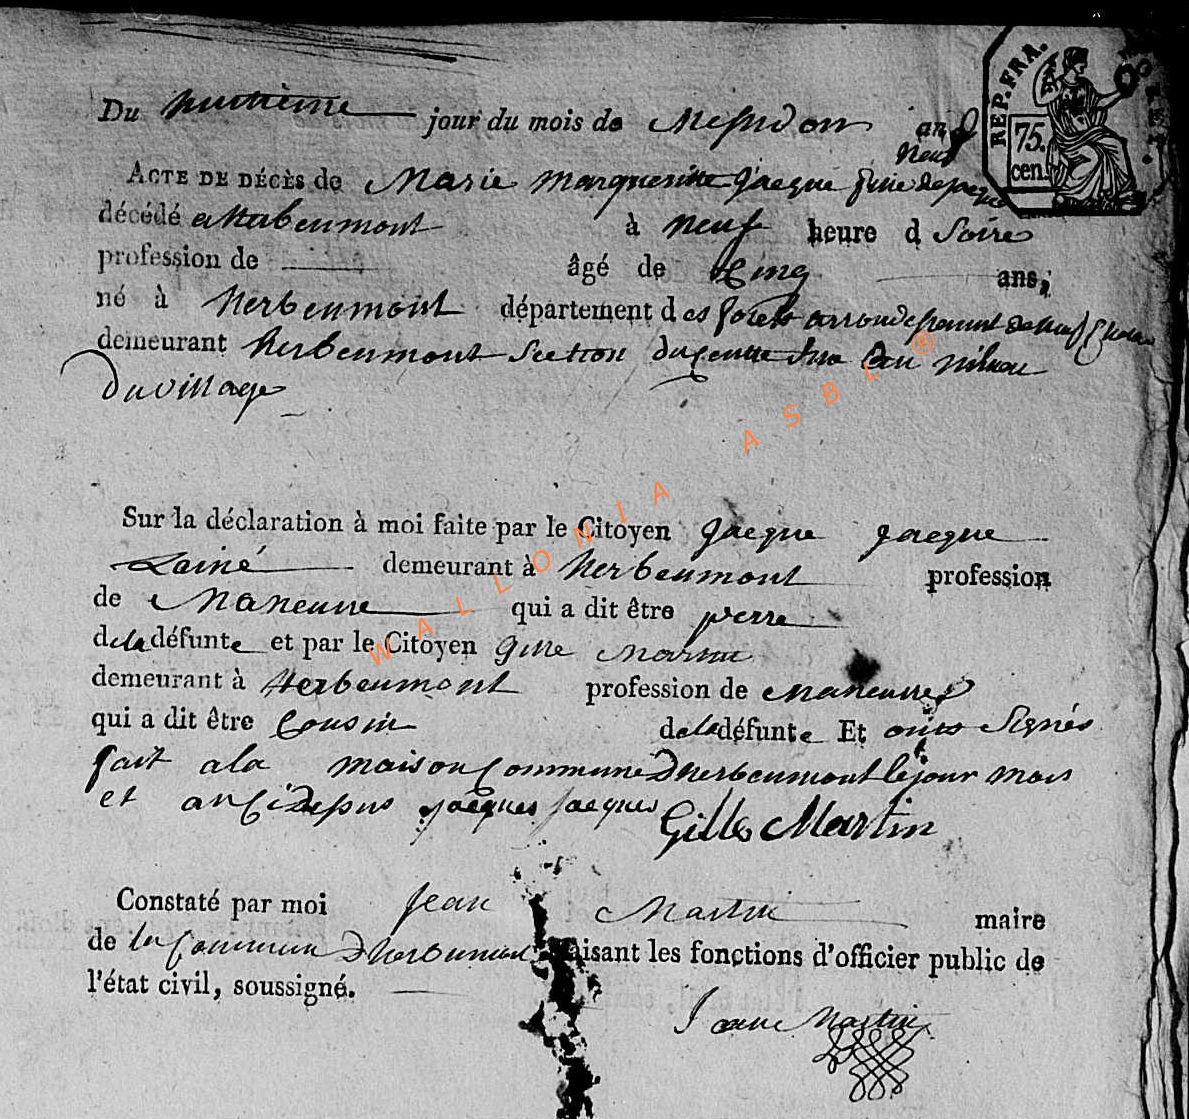 REP. FRA.
75.
cen.
Du huitieme jour du mois de Messidor an
neuf
ACTE DE DÉCÈS de Marie Margueritte Jacque fille de
décédé a Harbeumont à neuf heure d Soire
profession de âgé de Cinq ans,
né à Herbeumont département des forets
demeurant herbeumont Section du Centre au
du village
Sur la déclaration à moi faite par le Citoyen Jacque Jacque
Lainé demeurant à Herbeumont profession
de Maneuvre qui a dit être perre
dela défunte et par le Citoyen Gille Martin
demeurant à Herbeumont profession de Maneuvre
qui a dit être Cousin dela défunte Et onts Signés
fait ala maison Commune Dherbeumont le jour mois
et an Cidessus Jacques Jacques Gilles Martin
Constaté par moi Jean Martin maire
de la Commun Dherbeumont faisant les fonctions d'officier public de
l'état civil, soussigné.
Martin
WALLONIA ASBL ®